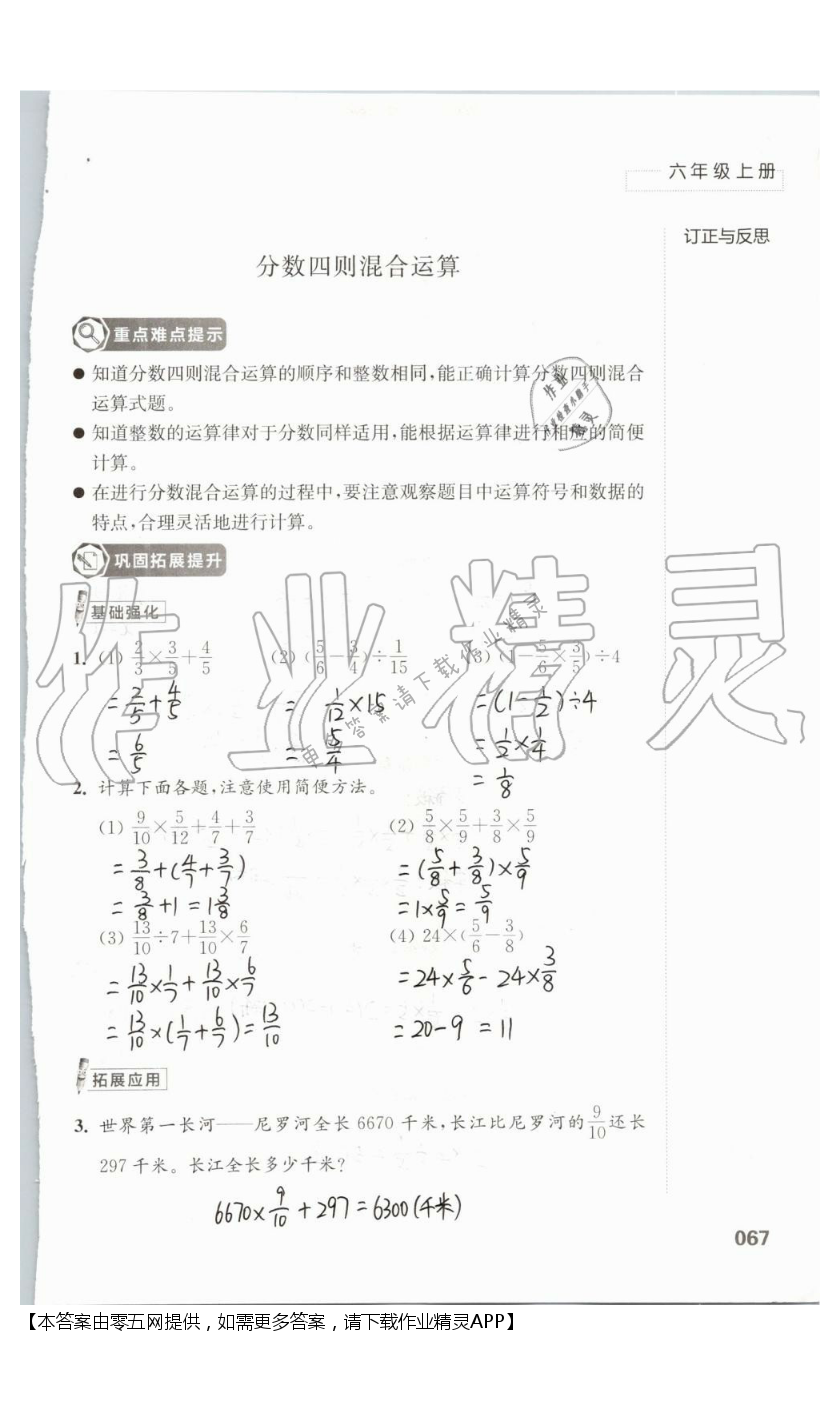 六年级上册
订正与反思
分数四则混合运算
重点难点提示
● 知道分数四则混合运算的顺序和整数相同,能正确计算分数四则混合
运算式题。
● 知道整数的运算律对于分数同样适用,能根据运算律进行相应的简便
计算。
● 在进行分数混合运算的过程中,要注意观察题目中运算符号和数据的
特点,合理灵活地进行计算。
巩固拓展提升
基础强化
1. (1) 2/3×3/5+4/5 (2) (5/6-3/4)÷1/15 (3) (1-5/6×3/5)÷4
=2/5+4/5 = 1/12×15 =(1-1/2)÷4
=6/5 = 5/4 =1/2×1/4
=1/8
2. 计算下面各题,注意使用简便方法。
(1) 9/10×5/12+4/7+3/7 (2) 5/8×5/9+3/8×5/9
=3/8+(4/7+3/7) =(5/8+3/8)×5/9
=3/8+1=1 3/8 =1×5/9=5/9
(3) 13/10÷7+13/10×6/7 (4) 24×(5/6-3/8)
=13/10×1/7+13/10×6/7 =24×5/6-24×3/8
=13/10×(1/7+6/7)=13/10 =20-9=11
拓展应用
3. 世界第一长河——尼罗河全长 6670 千米,长江比尼罗河的9/10还长
297 千米。长江全长多少千米?
6670×9/10+297=6300(千米)
067
作业精灵
【本答案由零五网提供，如需更多答案，请下载作业精灵APP】